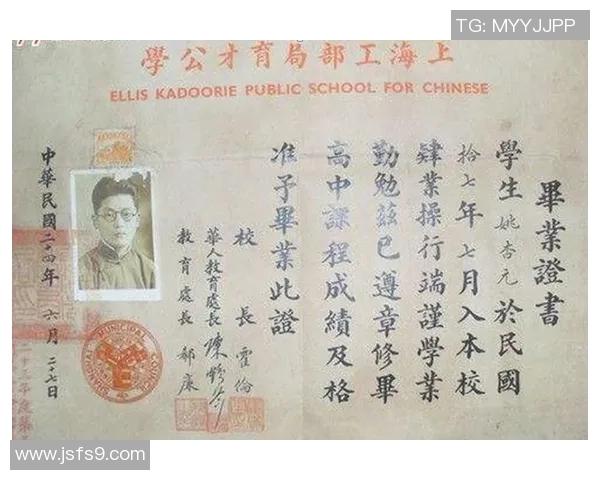 TG: MYYJJPP
學公才育局部工海上
ELLIS KADOORIE PUBLIC SCHOOL FOR CHINESE
畢業證書
學生姚杏元於民國
拾七年七月入本校
肄業操行端謹學業
勤勉茲已遵章修畢
高中課程成績及格
准予畢業此證
校長霍倫
華人教育處長陳
教育處長郝廉
中華民國二十四年六月二十七日
SHANGHAI MUNICIPAL COUNCIL
www.jsfs9.com